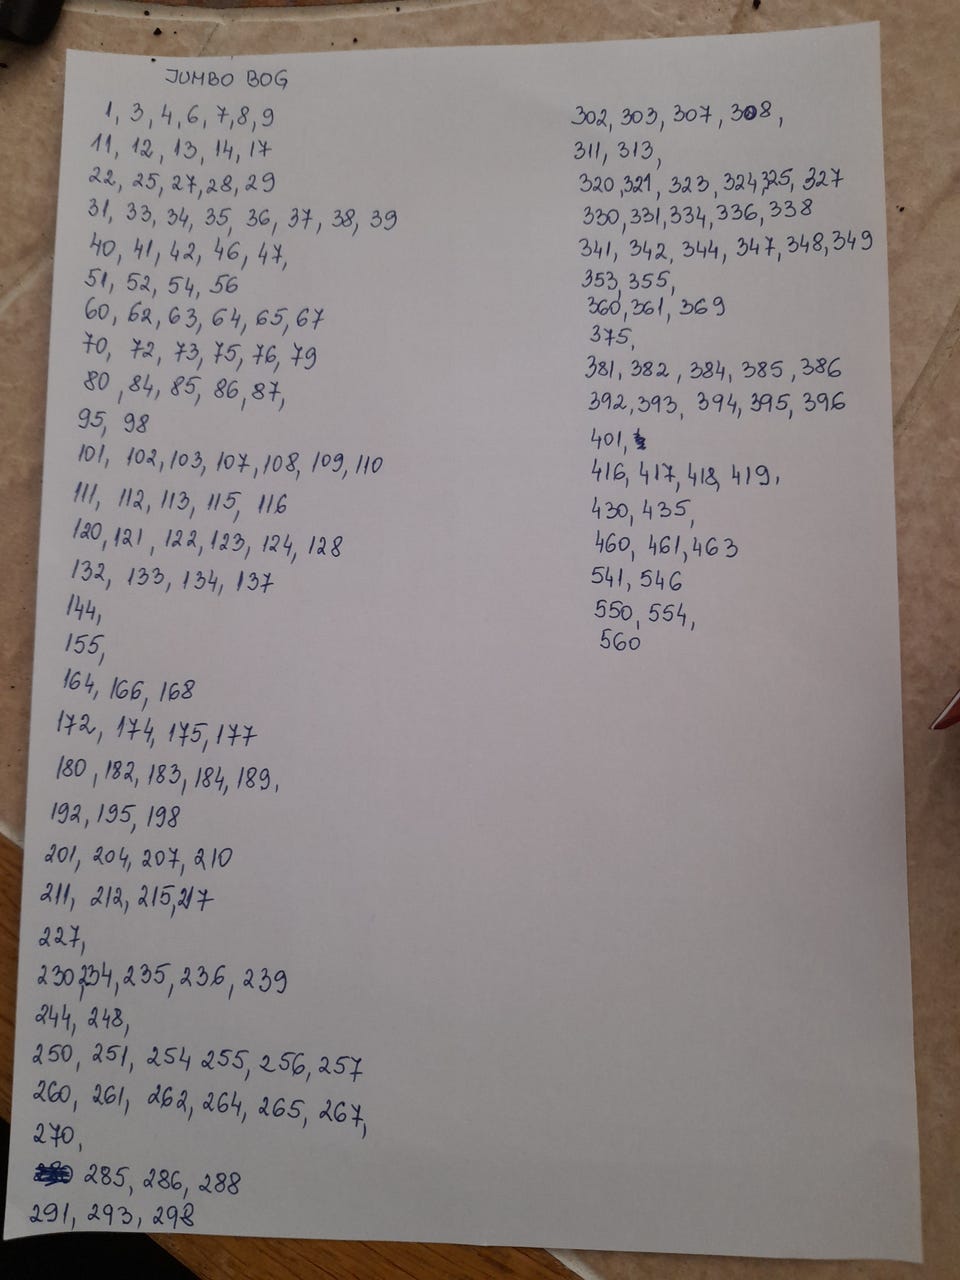 JUMBO BOG
1, 3, 4, 6, 7, 8, 9
11, 12, 13, 14, 17
22, 25, 27, 28, 29
31, 33, 34, 35, 36, 37, 38, 39
40, 41, 42, 46, 47,
51, 52, 54, 56
60, 62, 63, 64, 65, 67
70, 72, 73, 75, 76, 79
80, 84, 85, 86, 87,
95, 98
101, 102, 103, 107, 108, 109, 110
111, 112, 113, 115, 116
120, 121, 122, 123, 124, 128
132, 133, 134, 137
144,
155,
164, 166, 168
172, 174, 175, 177
180, 182, 183, 184, 189,
192, 195, 198
201, 204, 207, 210
211, 212, 215, 217
227,
230, 234, 235, 236, 239
244, 248,
250, 251, 254 255, 256, 257
260, 261, 262, 264, 265, 267,
270,
285, 286, 288
291, 293, 298
302, 303, 307, 308,
311, 313,
320, 321, 323, 324, 325, 327
330, 331, 334, 336, 338
341, 342, 344, 347, 348, 349
353, 355,
360, 361, 369
375,
381, 382, 384, 385, 386
392, 393, 394, 395, 396
401,
416, 417, 418, 419,
430, 435,
460, 461, 463
541, 546
550, 554,
560